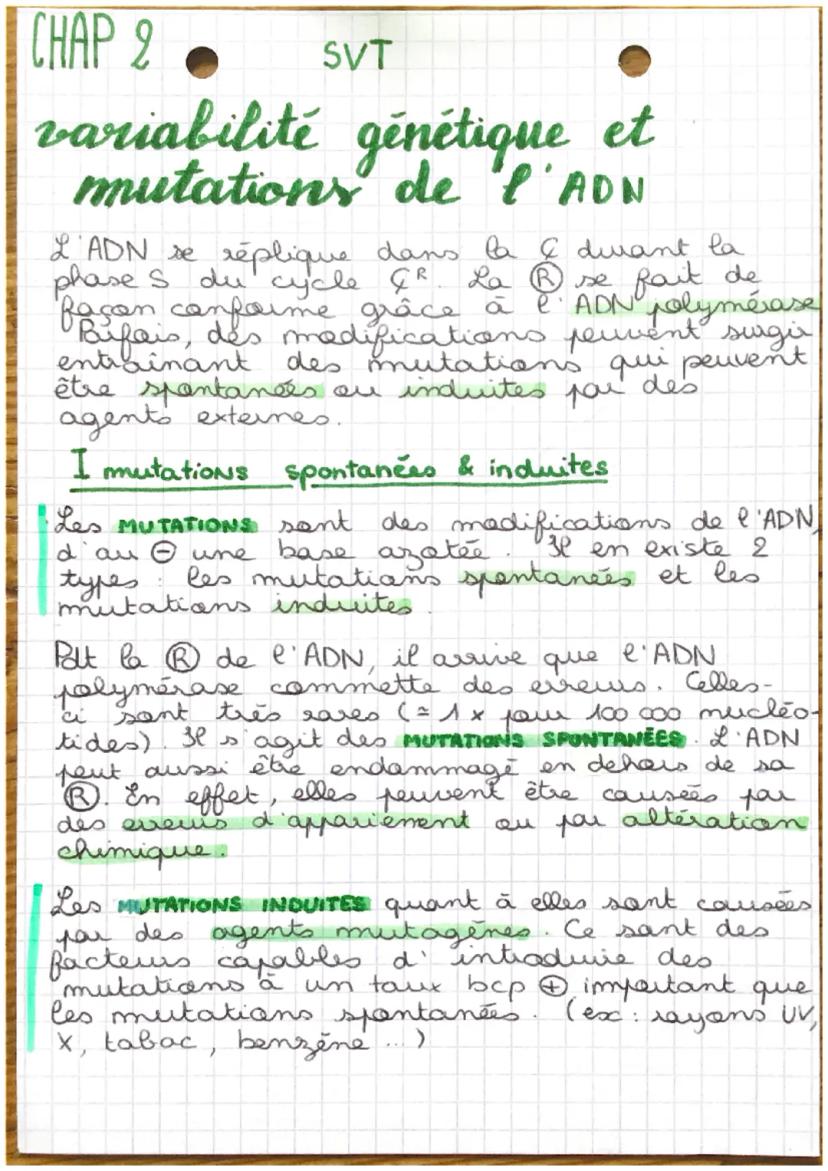 CHAP 2
SVT
variabilité génétique et
mutations de l'ADN
L'ADN se réplique dans la Ç durant la
phase S du cycle Çᴿ. La Ⓡ se fait de
façon conforme grâce à l'ADN polymérase
Parfois, des modifications peuvent surgir
entraînant des mutations qui peuvent
être spontanées ou induites par des
agents externes.
I mutations spontanées & induites
Les MUTATIONS sont des modifications de l'ADN,
d'au ⊖ une base azotée. Il en existe 2
types : les mutations spontanées et les
mutations induites.
Pdt la Ⓡ de l'ADN, il arrive que l'ADN
polymérase commette des erreurs. Celles-
ci sont très rares (≃ 1 x pour 100 000 nucléo-
tides). Il s'agit des MUTATIONS SPONTANÉES. L'ADN
peut aussi être endommagé en dehors de sa
Ⓡ. En effet, elles peuvent être causées par
des erreurs d'appariement ou par altération
chimique.
Les MUTATIONS INDUITES quant à elles sont causées
par des agents mutagènes. Ce sont des
facteurs capables d'introduire des
mutations à un taux bcp ⊕ important que
les mutations spontanées. (ex : rayons UV,
X, tabac, benzène ...)